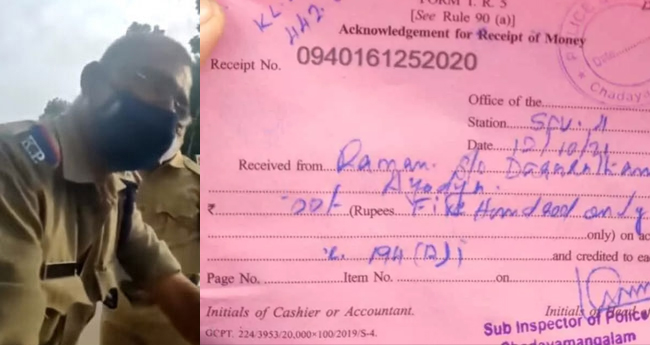 K.P
KL
442
FORM T. R. 5
[See Rule 90 (a)]
Acknowledgement for Receipt of Money
Receipt No. 0940161252020
POLICE
Date
Chadaya
Office of the
Station SFV. 11
Date 12/10/21
Received from Raman. S/o
Ayodya.
₹ 500/- (Rupees Five Hundred only
only) on ac
194 (D)
and credited to
Page No. Item No. on
Initials of Cashier or Accountant. Initials of Head
Sub Inspector of Police
GCPT. 224/3953/20,000×100/2019/S-4.
Chadayamangalam